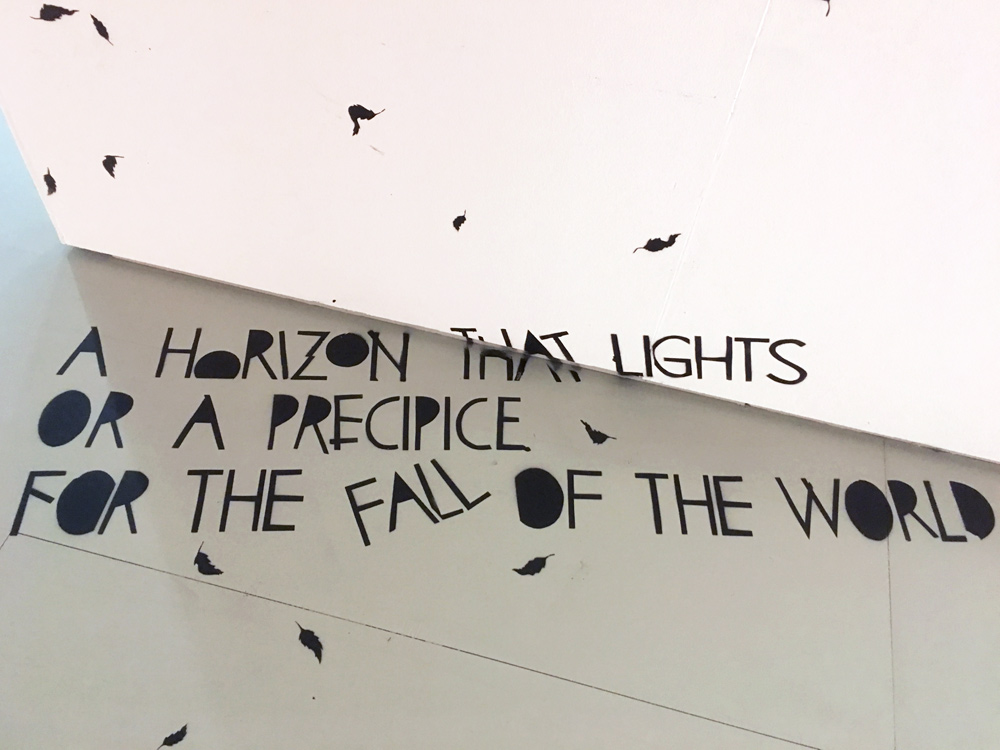 A HORIZON THAT LIGHTS
OR A PRECIPICE
FOR THE FALL OF THE WORLD